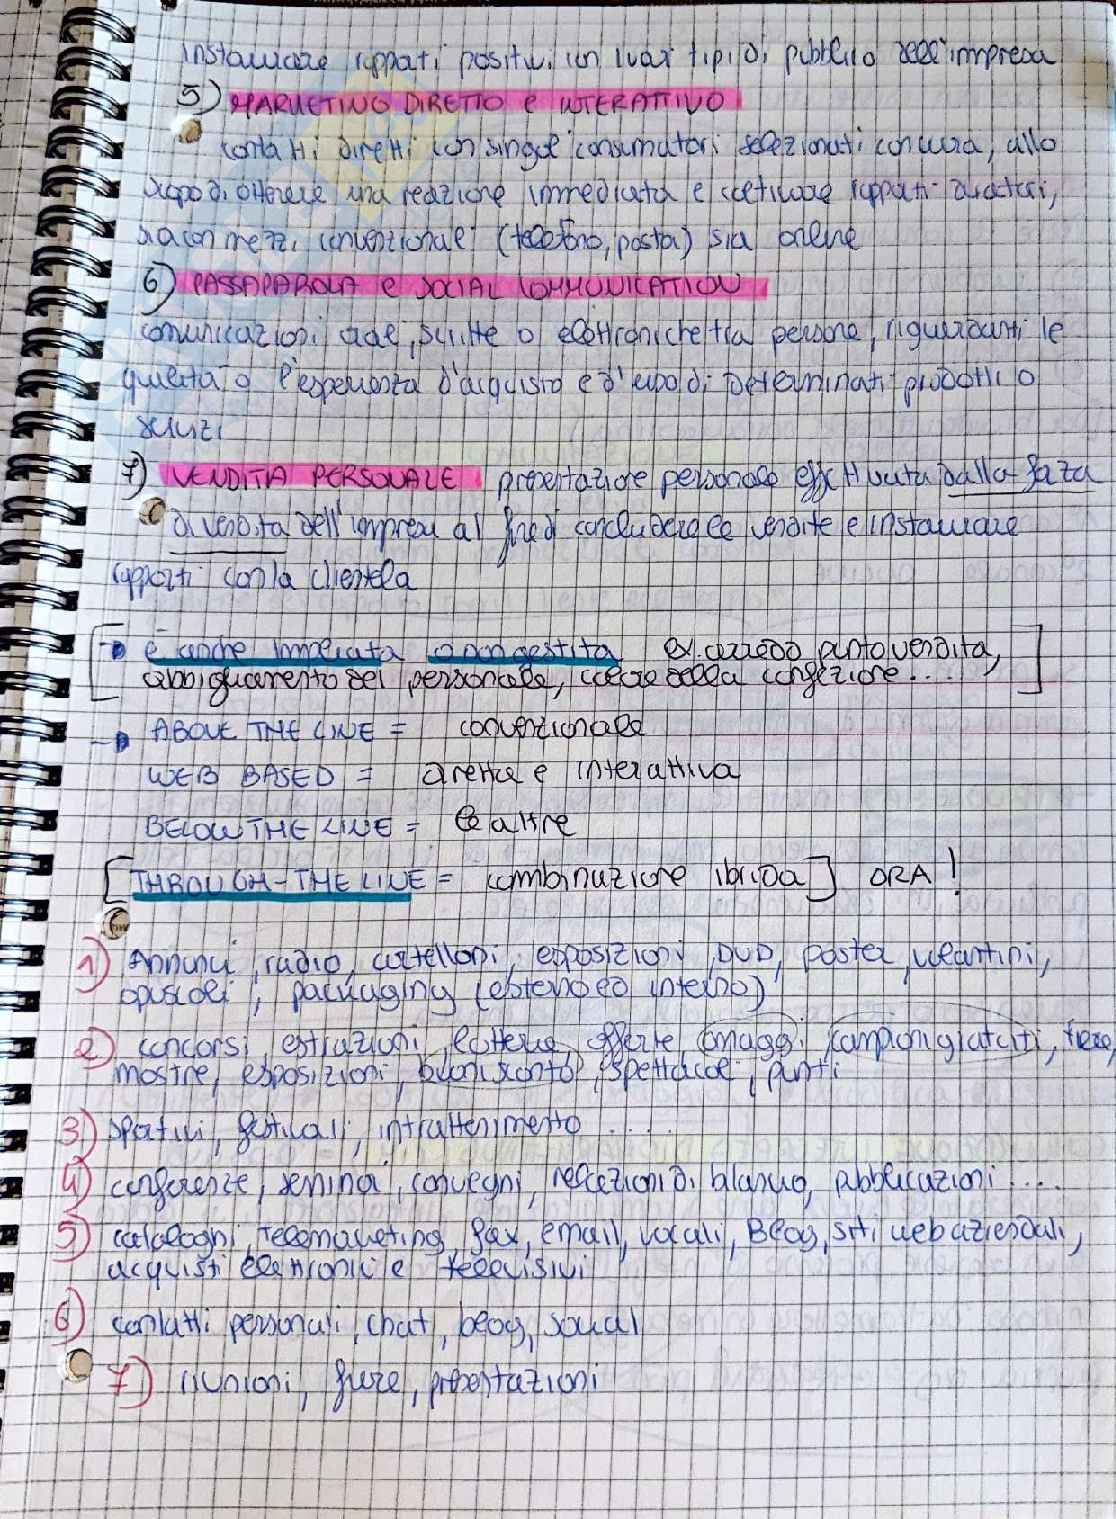 instaurare rapporti positivi con i vari tipi di pubblico dell'impresa
5) MARKETING DIRETTO e INTERATTIVO
contatti diretti con singoli consumatori selezionati con cura, allo
scopo di ottenere una reazione immediata e coltivare rapporti duraturi,
sia con mezzi convenzionali (telefono, posta) sia online
6) PASSAPAROLA e SOCIAL COMMUNICATION
comunicazioni orali, scritte o elettroniche tra persone, riguardanti le
qualità o l'esperienza d'acquisto e d'uso di determinati prodotti o
servizi
7) VENDITA PERSONALE presentazione personale effettuata dalla forza
di vendita dell'impresa al fine di concludere le vendite e instaurare
rapporti con la clientela
è anche implicata o non gestita es. arredo punto vendita,
abbigliamento del personale, colore della confezione....
ABOVE THE LINE = convenzionale
WEB BASED = diretta e interattiva
BELOW THE LINE = le altre
[THROUGH-THE LINE = combinazione ibrida] ORA!
1) Annunci, radio, cartelloni, esposizioni, DVD, poster, volantini,
opuscoli, packaging (esterno ed interno)
2) concorsi, estrazioni, lotterie, offerte omaggi, campioni gratuiti, fiere,
mostre, esposizioni, buoni sconto, spettacoli, punti
3) sportivi, festival, intrattenimento....
4) conferenze, seminari, convegni, relazioni di bilancio, pubblicazioni....
5) cataloghi, telemarketing, fax, email, vocali, Blog, siti web aziendali,
acquisti elettronici e televisivi
6) contatti personali, chat, blog, social
7) riunioni, fiere, presentazioni